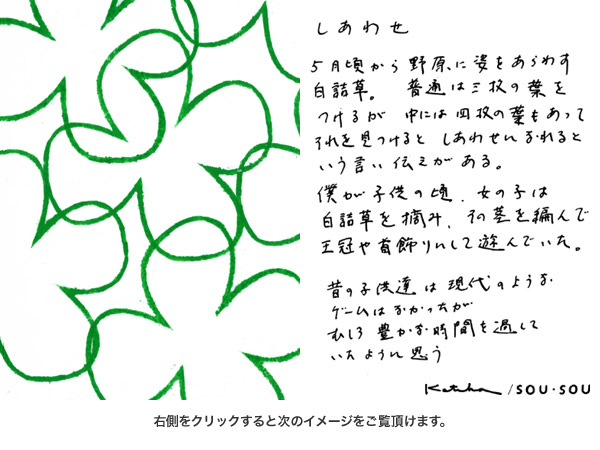 しあわせ
5月頃から野原に姿をあらわす
白詰草。普通は三枚の葉を
つけるが 中には四枚の葉もあって
それを見つけると しあわせになれると
いう言い伝えがある。
僕が子供の頃、女の子は
白詰草を摘み、その茎を編んで
王冠や首飾りにして遊んでいた。
昔の子供達は現代のような
ゲームはなかったが
むしろ 豊かな時間を過して
いたように思う
/SOU・SOU
右側をクリックすると次のイメージをご覧頂けます。